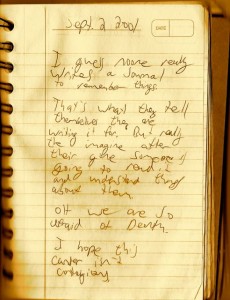 Sept. 2 2001
DATE
I guess noone really
writes a Journal
to remember things.
That's what they tell
themselves they are
writing it for. But really
the imagine after
their gone someone
going to read it
and understand things
about them.
Oh we are so
afraid of Death.
I hope this
cancer isn't
contagious